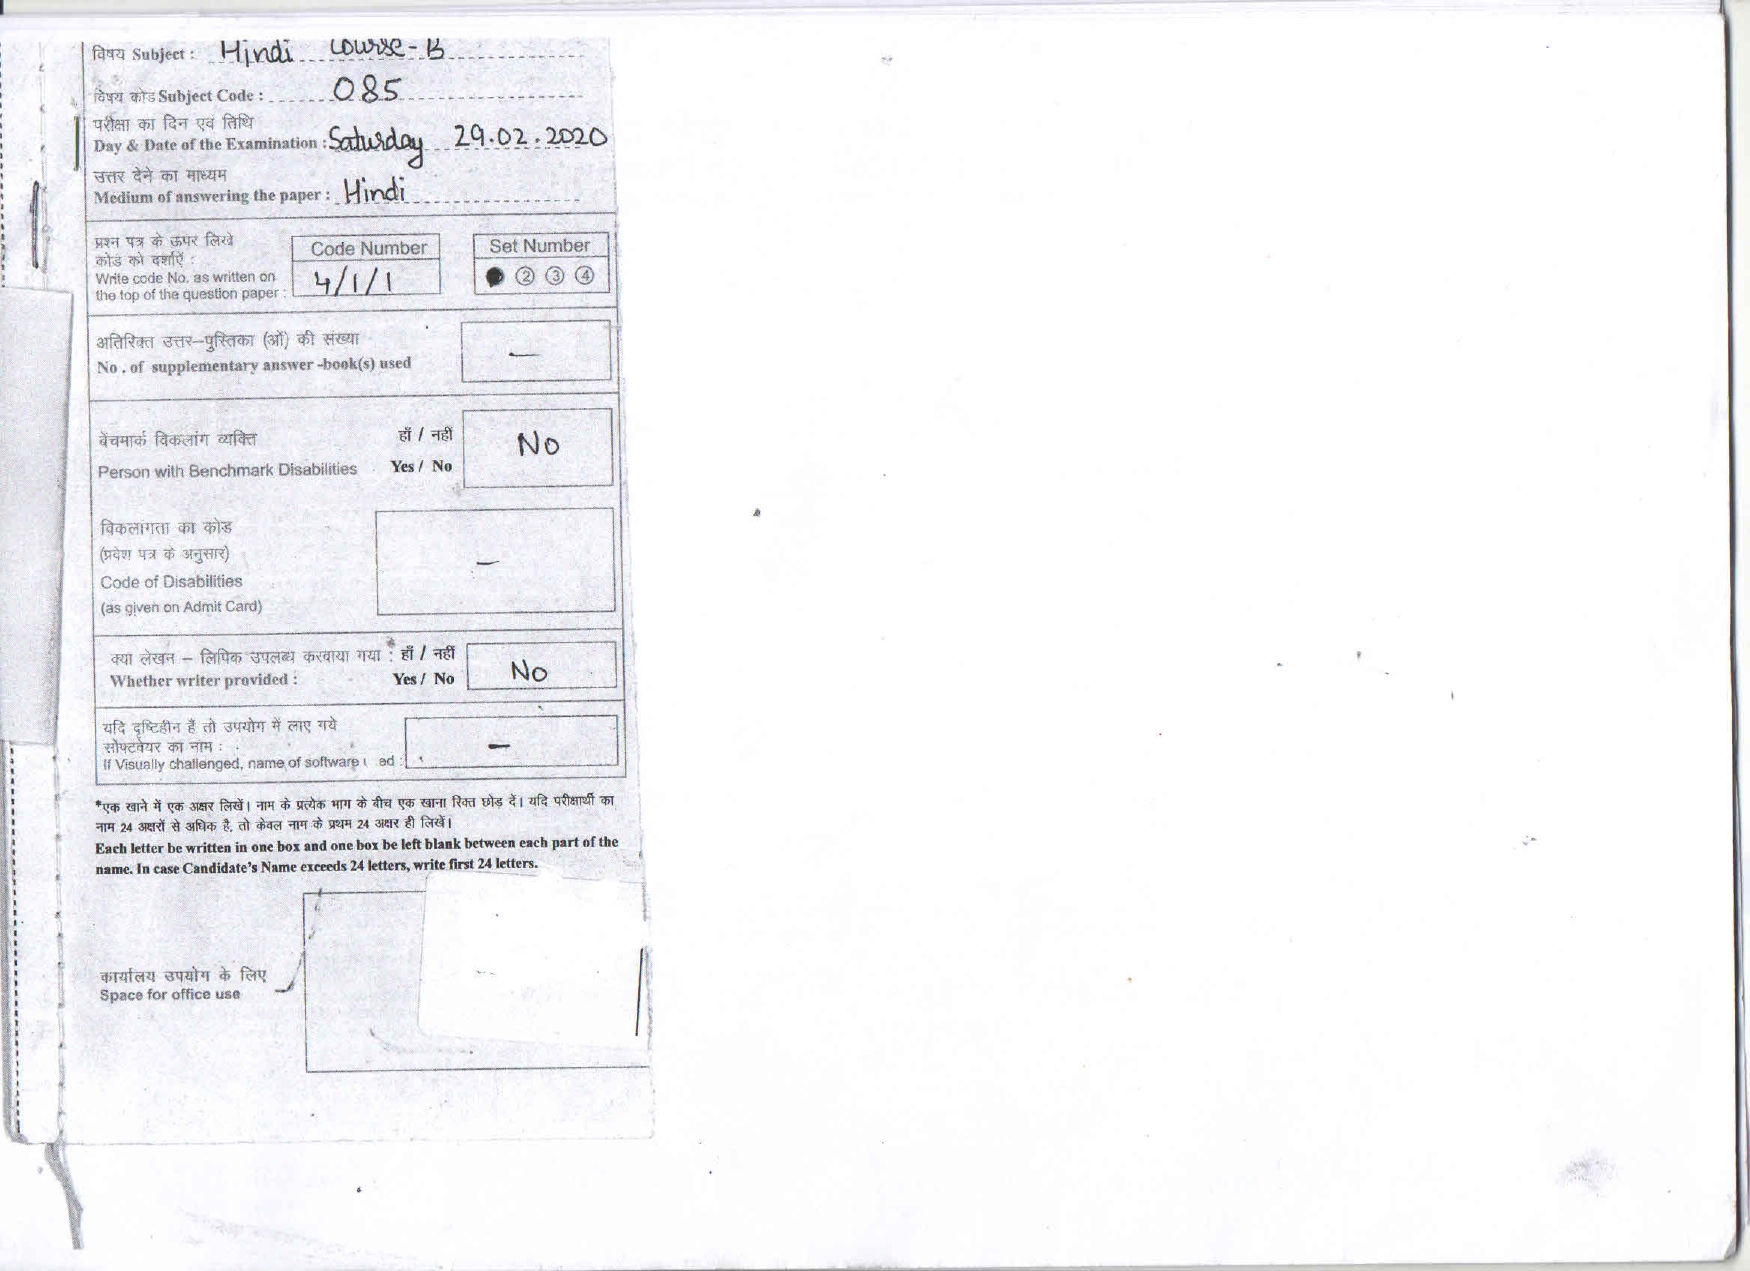 विषय Subject : Hindi Course-B
विषय कोड Subject Code : 085
परीक्षा का दिन एवं तिथि
Day & Date of the Examination : Saturday 29.02.2020
उत्तर देने का माध्यम
Medium of answering the paper : Hindi
प्रश्न पत्र के ऊपर लिखे
कोड को दर्शाएँ :
Write code No. as written on
the top of the question paper :
Code Number
4/1/1
Set Number
② ③ ④
अतिरिक्त उत्तर–पुस्तिका (ओं) की संख्या
No . of supplementary answer -book(s) used
–
बेंचमार्क विकलांग व्यक्ति हाँ / नहीं
Person with Benchmark Disabilities Yes / No
No
विकलांगता का कोड
(प्रवेश पत्र के अनुसार)
Code of Disabilities
(as given on Admit Card)
–
क्या लेखन – लिपिक उपलब्ध करवाया गया : हाँ / नहीं
Whether writer provided : Yes / No
No
यदि दृष्टिहीन हैं तो उपयोग में लाए गये
सोफ्टवेयर का नाम :
If Visually challenged, name of software ed :
–
*एक खाने में एक अक्षर लिखें। नाम के प्रत्येक भाग के बीच एक खाना रिक्त छोड़ दें। यदि परीक्षार्थी का
नाम 24 अक्षरों से अधिक है, तो केवल नाम के प्रथम 24 अक्षर ही लिखें।
Each letter be written in one box and one box be left blank between each part of the
name. In case Candidate's Name exceeds 24 letters, write first 24 letters.
कार्यालय उपयोग के लिए
Space for office use